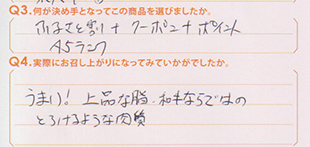 Q3.何が決め手となってこの商品を選びましたか。
ふるさと割+クーポン+ポイント
A5ランク
Q4.実際にお召し上がりになってみていかがでしたか。
うまい!上品な脂.和牛ならではの
とろけるような肉質